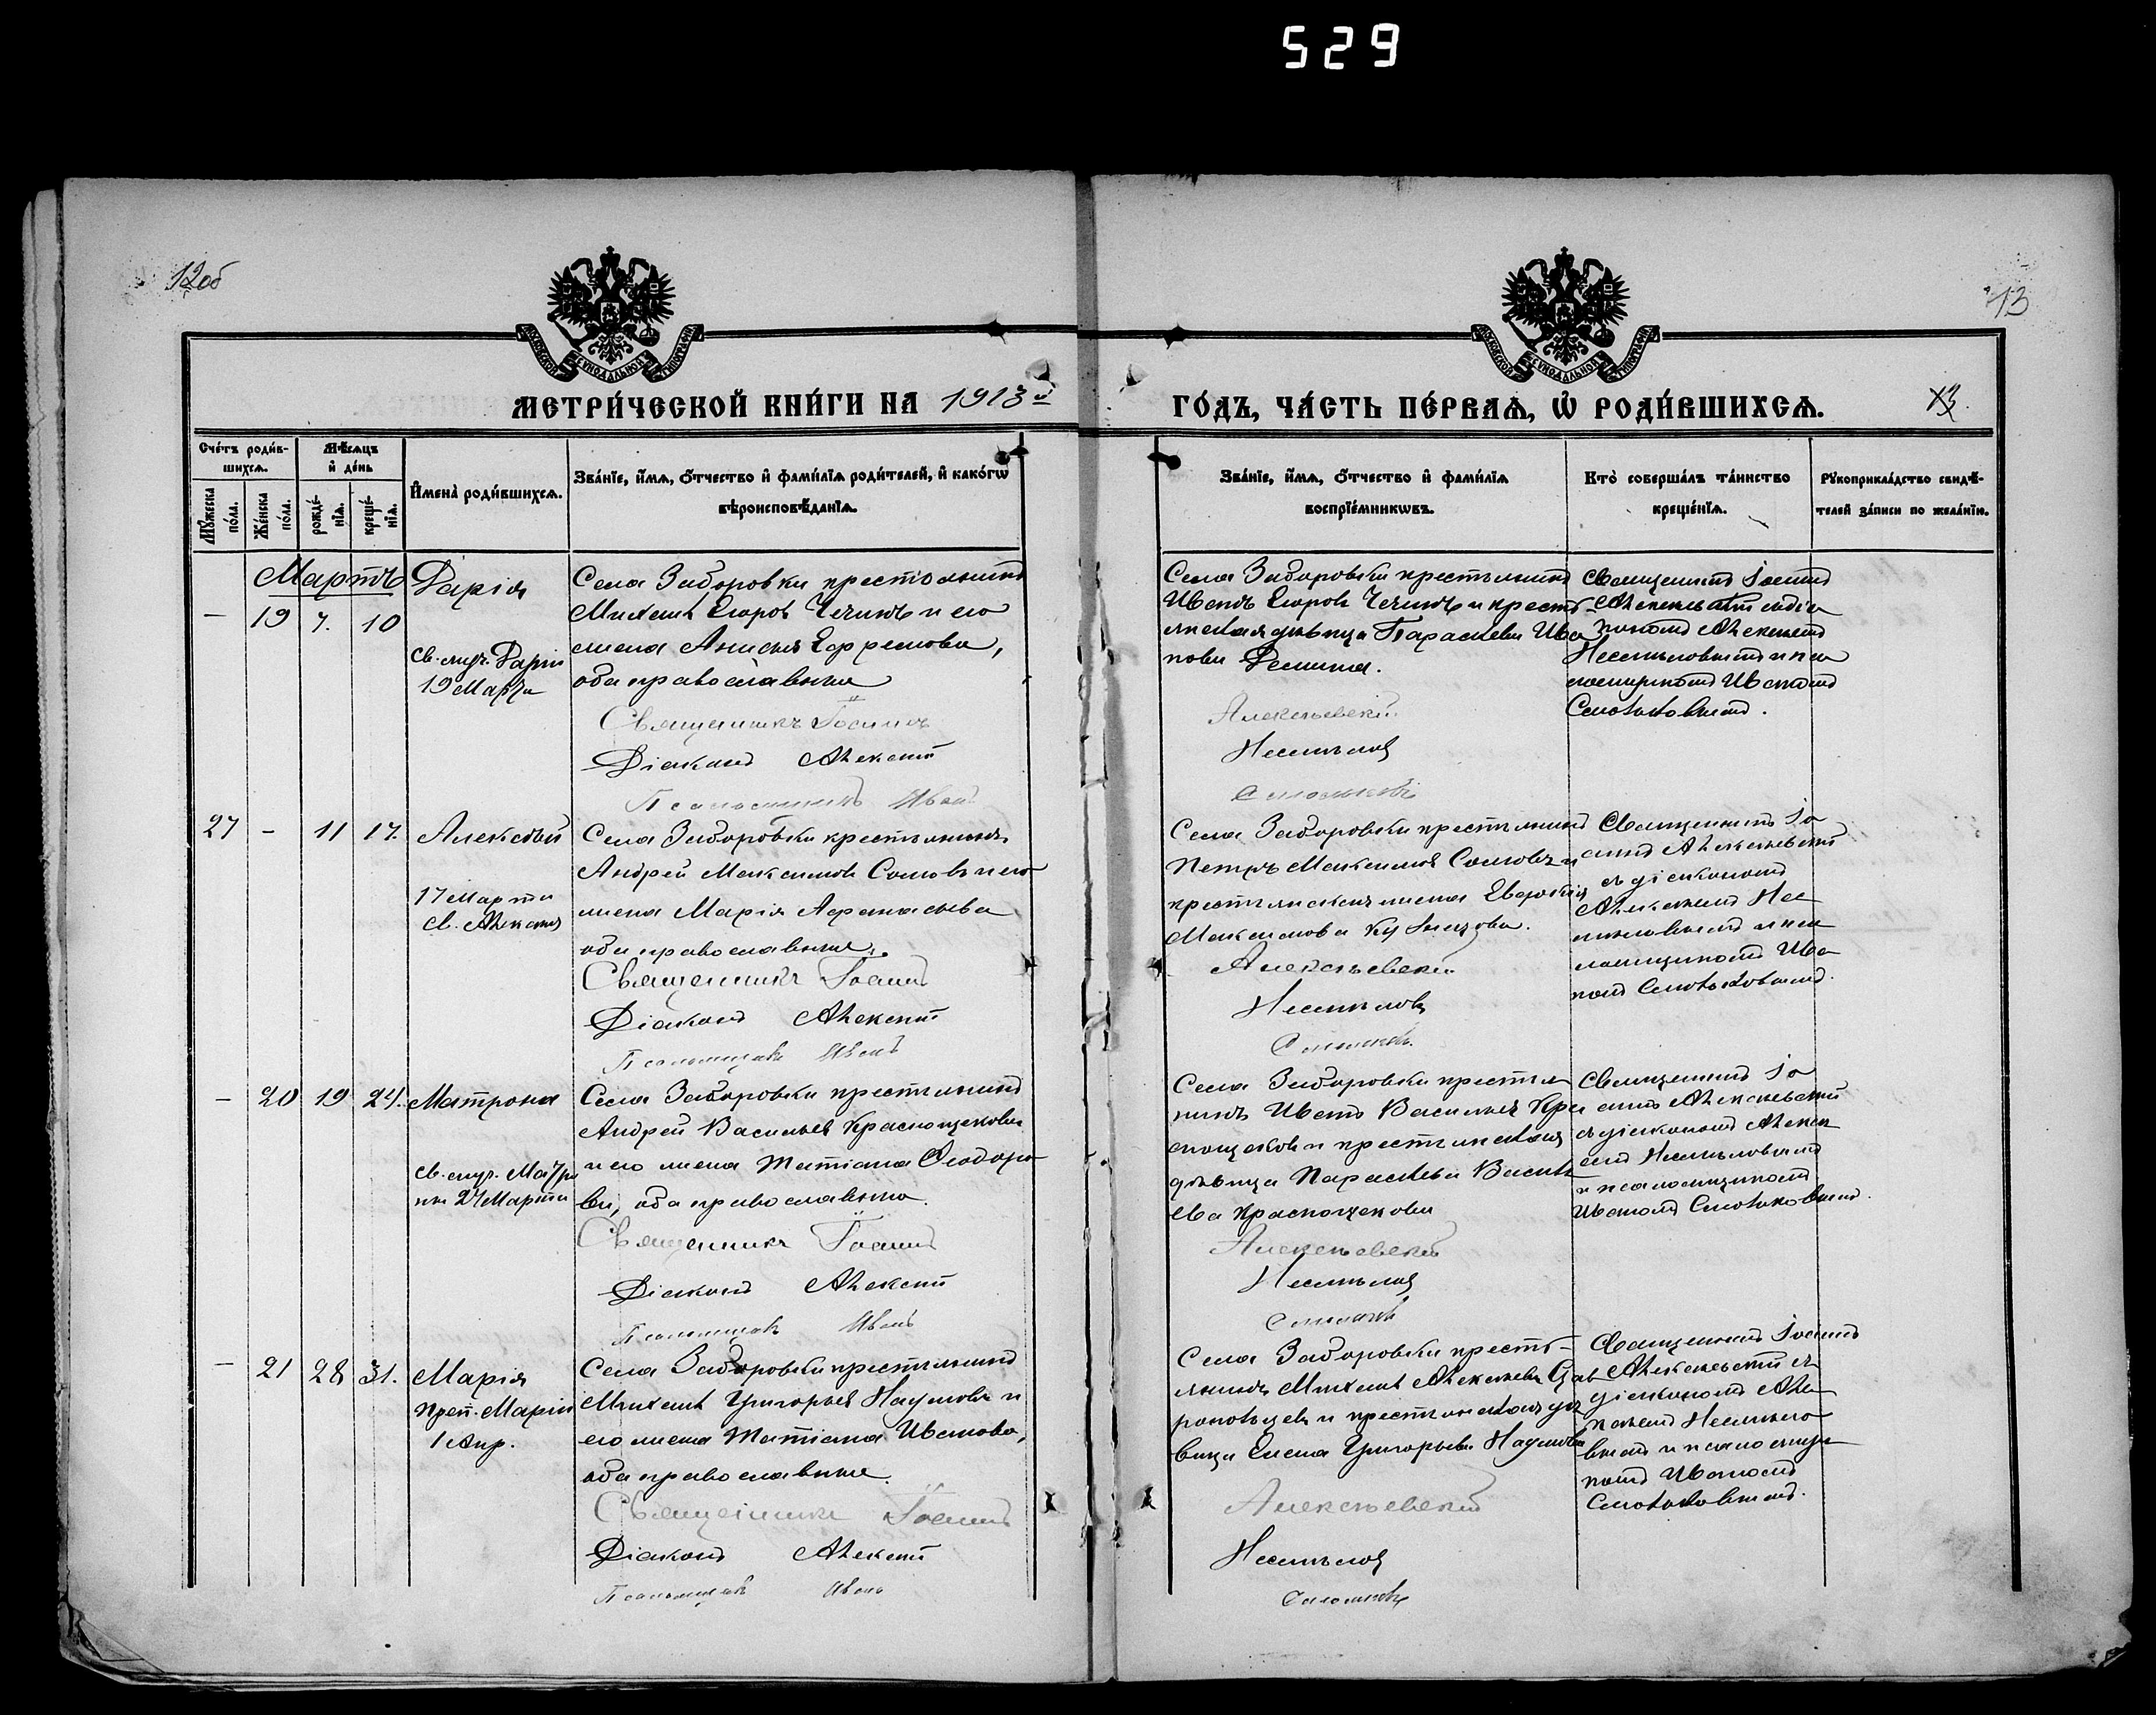 529
12об
13
МЕТРИ́ЧЕСКОЙ КНИ́ГИ НА 1913й
ГО́ДЪ, ЧА́СТЬ ПЕ́РВАѦ, Ѡ҆ РОДИ́ВШИХСѦ.
13.
Сче́тъ роди́в-
шихсѧ.
Мѣ́сѧцъ
и҆ де́нь
Мꙋ́жеска
по́ла.
Же́нска
по́ла.
рожде́-
нїѧ.
креще́-
нїѧ.
И҆мена̀ роди́вшихсѧ.
Зва́нїе, и҆́мѧ, ѻ҆́тчество и҆ фами́лїѧ роди́телей, и҆ како́гѡ
вѣроисповѣ́данїѧ.
Зва́нїе, и҆́мѧ, ѻ҆́тчество и҆ фами́лїѧ
воспрїе́мникѡвъ.
Кто̀ соверша́лъ та́инство
креще́нїѧ.
Рꙋкоприкла́дство свидѣ́-
телей за́писи по жела́нїю.
Мартъ
— 19 7. 10
Дарія
св. муч. Даріи
19 Марта
Села Заборовки крестьянинъ
Михаилъ Егоровъ Чечинъ и его
жена Анисья Ефремова,
оба православные
Священникъ Іоаннъ
Діаконъ Алексій
Псаломщикъ Иванъ
Села Заборовки крестьянинъ
Иванъ Егоровъ Чечинъ и кресть-
янская дѣвица Параскева Ива
нова Демина.
Алексѣевскій
Несмѣловъ
Священникъ Іоаннъ
Алексѣевскій съ діа
кономъ Алексѣемъ
Несмѣловымъ и пса
ломщикомъ Иваномъ
27 — 11 17.
Алексѣй
17 Марта
св. Алексія
Села Заборовки крестьянинъ
Андрей Максимовъ Сомовъ и его
жена Марія Афанасьева
оба православные.
Священникъ Іоаннъ
Діаконъ Алексій
Псаломщикъ Иванъ
Села Заборовки крестьянинъ
Петръ Максимовъ Сомовъ и
крестьянская жена Евдокія
Максимова Кузнецова.
Алексѣевскій
Несмѣловъ
Священникъ Іо
аннъ Алексѣевскій
съ діакономъ
Алексѣемъ Нес
мѣловымъ и пса
ломщикомъ Ива
номъ
— 20 19 24.
Матрона
св. муч. Матро
ны 27 Марта
Села Заборовки крестьянинъ
Андрей Васильевъ Краснощековъ
и его жена Татіана Ѳеодоро
ва, оба православные.
Священникъ Іоаннъ
Діаконъ Алексій
Псаломщикъ Иванъ
Села Заборовки крестья
нинъ Иванъ Васильевъ Кра
снощековъ и крестьянская
дѣвица Параскева Василь
ева Краснощекова
Алексѣевскій
Несмѣловъ
Священникъ Іо
аннъ Алексѣевскій
съ діакономъ Алексѣ
емъ Несмѣловымъ
и псаломщикомъ
Иваномъ
— 21 28 31.
Марія
преп. Маріи
1 Апр.
Села Заборовки крестьянинъ
Михаилъ Григорьевъ Наумовъ и
его жена Татіана Иванова,
оба православные.
Священникъ Іоаннъ
Діаконъ Алексій
Псаломщикъ Иванъ
Села Заборовки кресть-
янинъ Михаилъ Алексѣевъ
и крестьянская дѣ
вица Елена Григорьева Наумова
Алексѣевскій
Несмѣловъ
Священникъ Іоаннъ
Алексѣевскій съ
діакономъ Але
ксѣемъ Несмѣло
вымъ и псаломщи
комъ Иваномъ